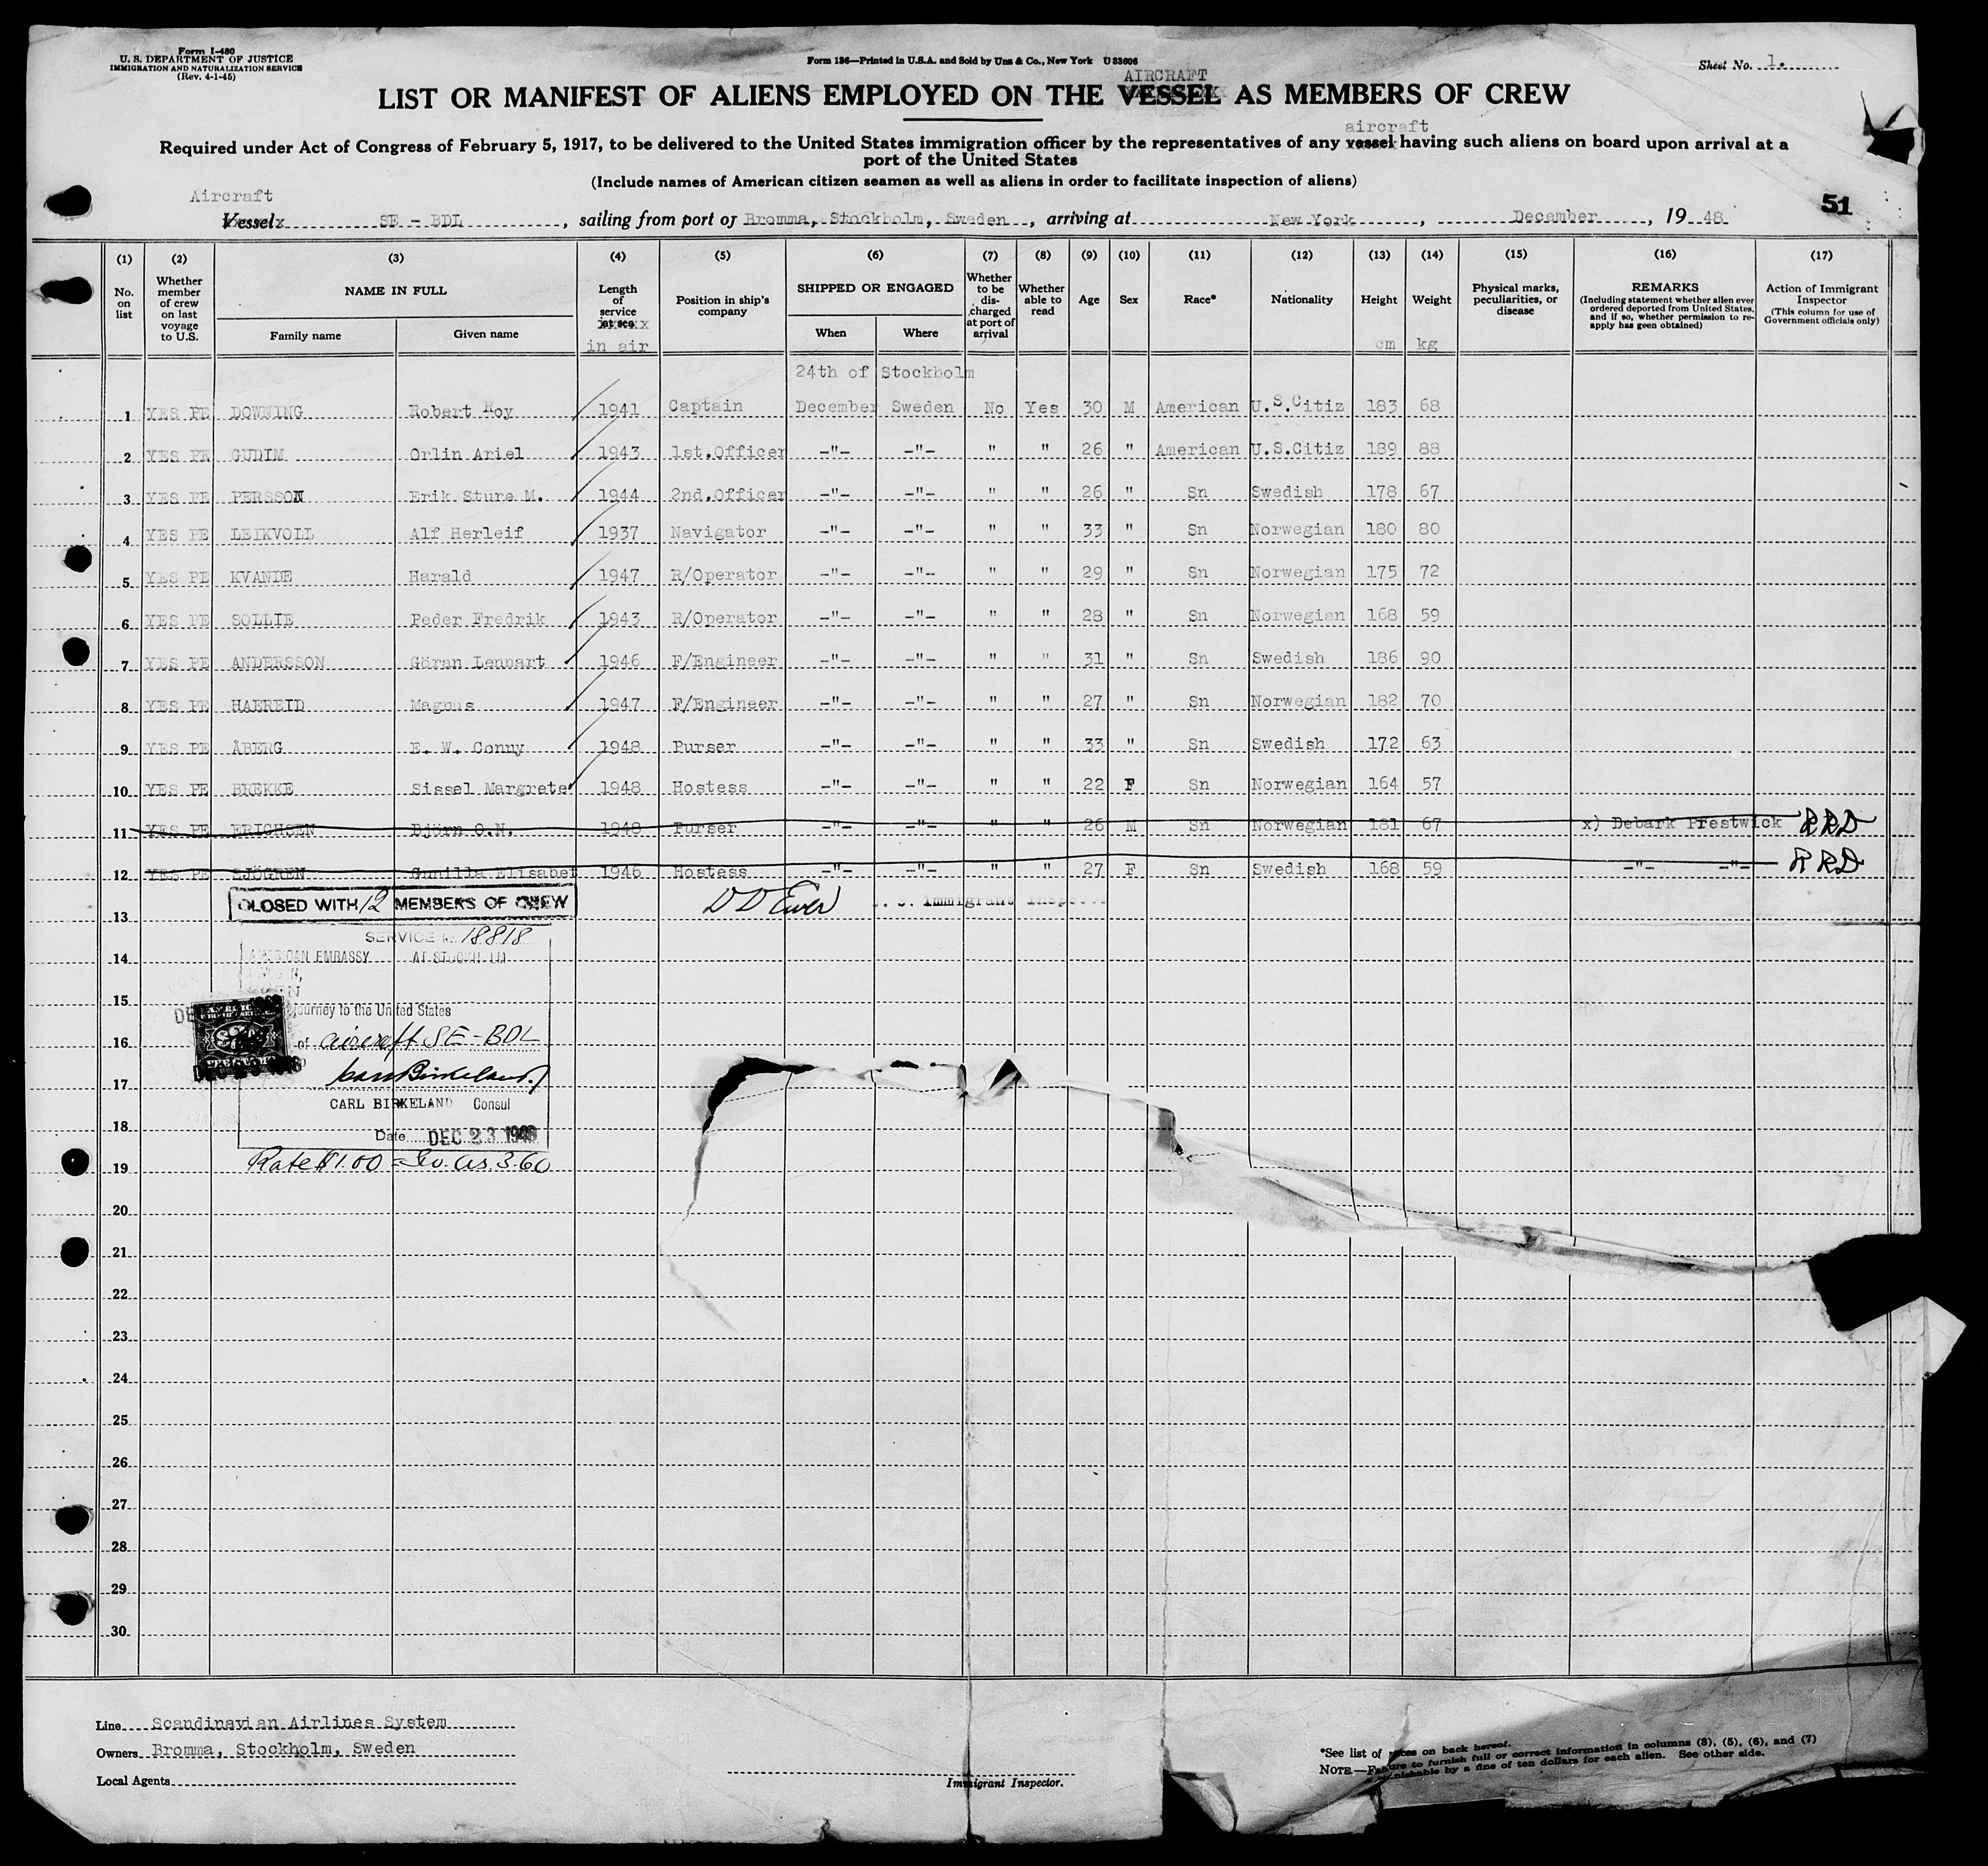 Form I-480
U. S. DEPARTMENT OF JUSTICE
IMMIGRATION AND NATURALIZATION SERVICE
(Rev. 4-1-45)
Form 136—Printed in U.S.A. and Sold by Unz & Co., New York U 33606
Sheet No. 1.
AIRCRAFT
LIST OR MANIFEST OF ALIENS EMPLOYED ON THE VESSEL AS MEMBERS OF CREW
aircraft
Required under Act of Congress of February 5, 1917, to be delivered to the United States immigration officer by the representatives of any vessel having such aliens on board upon arrival at a
port of the United States
(Include names of American citizen seamen as well as aliens in order to facilitate inspection of aliens)
51
Aircraft
Vessel SE - BDL, sailing from port of Bromma, Stockholm, Sweden, arriving at New York, December, 19 48
(1) (2) (3) (4) (5) (6) (7) (8) (9) (10) (11) (12) (13) (14) (15) (16) (17)
No. on list
Whether member of crew on last voyage to U.S.
NAME IN FULL
Family name
Given name
Length of service at sea
in air
Position in ship's company
SHIPPED OR ENGAGED
When
Where
Whether to be dis-charged at port of arrival
Whether able to read
Age
Sex
Race*
Nationality
Height
cm
Weight
kg
Physical marks, peculiarities, or disease
REMARKS
(Including statement whether alien ever ordered deported from United States, and if so, whether permission to re-apply has geen obtained)
Action of Immigrant Inspector
(This column for use of Government officials only)
24th of Stockholm
1 YES PE DOWNING Robert Roy 1941 Captain December Sweden No Yes 30 M American U.S.Citiz 183 68
2 YES PE GUDIM Orlin Ariel 1943 1st.Officer -"- -"- " " 26 " American U.S.Citiz 189 88
3 YES PE PERSSON Erik Sture M. 1944 2nd.Officer -"- -"- " " 26 " Sn Swedish 178 67
4 YES PE LEIKVOLL Alf Herleif 1937 Navigator -"- -"- " " 33 " Sn Norwegian 180 80
5 YES PE KVANDE Harald 1947 R/Operator -"- -"- " " 29 " Sn Norwegian 175 72
6 YES PE SOLLIE Peder Fredrik 1943 R/Operator -"- -"- " " 28 " Sn Norwegian 168 59
7 YES PE ANDERSSON Göran Lennart 1946 F/Engineer -"- -"- " " 31 " Sn Swedish 186 90
8 YES PE HAEREID Magnus 1947 F/Engineer -"- -"- " " 27 " Sn Norwegian 182 70
9 YES PE ÅBERG E. W. Conny 1948 Purser -"- -"- " " 33 " Sn Swedish 172 63
10 YES PE BREKKE Sissel Margrete 1948 Hostess -"- -"- " " 22 F Sn Norwegian 164 57
11 YES PE ERICHSEN Björn O.N. 1948 Purser -"- -"- " " 26 M Sn Norwegian 181 67 x) Debark Prestwick RRD
12 YES PE SJÖGREN Gunilla Elisabet 1946 Hostess -"- -"- " " 27 F Sn Swedish 168 59 -"- -"- RRD
CLOSED WITH 12 MEMBERS OF CREW
13
U. S. Immigrant Inspector
SERVICE No. 18818
14
AMERICAN EMBASSY AT STOCKHOLM
15
Journey to the United States
16
of aircraft SE-BDL
17
Carl Birkeland
CARL BIRKELAND Consul
18
Date DEC 23 1948
19
Rate $1.00 = 3.60
20
21
22
23
24
25
26
27
28
29
30
Line Scandinavian Airlines System
Owners Bromma, Stockholm, Sweden
Local Agents
Immigrant Inspector.
*See list of races on back hereof.
NOTE.—Failure to furnish full or correct information in columns (3), (5), (6), and (7)
punishable by a fine of ten dollars for each alien. See other side.